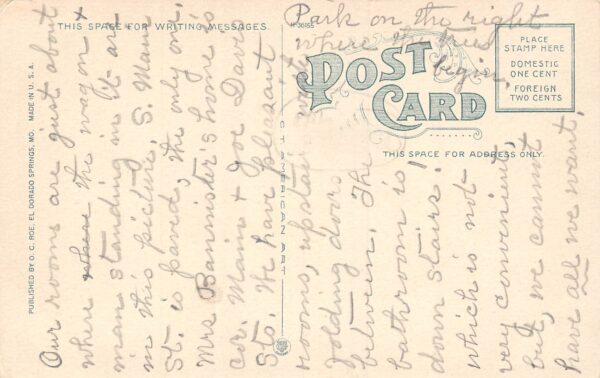 THIS SPACE FOR WRITING MESSAGES
H-30855
PLACE
STAMP HERE
DOMESTIC
ONE CENT
FOREIGN
TWO CENTS
POST
CARD
THIS SPACE FOR ADDRESS ONLY
PUBLISHED BY O. C. ROE, EL DORADO SPRINGS, MO. MADE IN U. S. A.
Our rooms are just about
where where the wagon +
man standing in it are
in this picture, S. Main
St. is paved, the only one,
Mrs Bannister's home is
cor. Main + Joe Davis
Sts. We have pleasant
rooms, upstairs with
folding doors
between. The
bathroom is
down stairs!
which is not
very convenient,
but, we cannot
have all we want,
Park on the right
where the trees
begin,